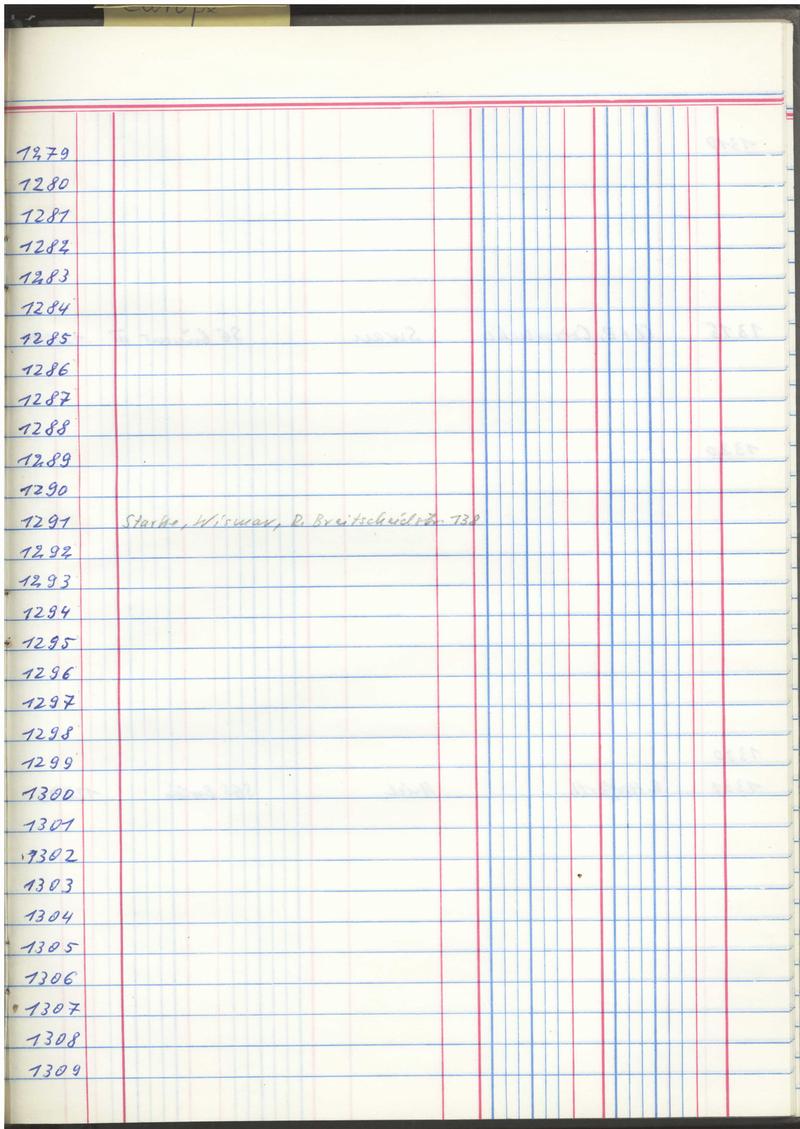 Europa
1279
1280
1281
1282
1283
1284
1285
1286
1287
1288
1289
1290
1291 Starke, Wismar, R. Breitscheidstr. 138
1292
1293
1294
1295
1296
1297
1298
1299
1300
1301
1302
1303
1304
1305
1306
1307
1308
1309